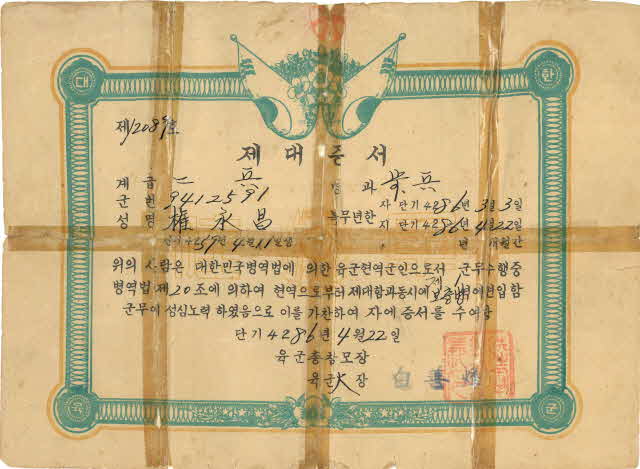 대 한
제대증서
계급 二兵 병과 兵
군번 9412591 자 단기 4286년 3월 3일
성명 權永昌 복무년한 지 단기 4286년 4월 22일
단기 4259년 4월 11일생 년 개월간
위의 사람은 대한민국병역법에 의한 육군현역군인으로서 군무수행중
병역법 제20조에 의하여 현역으로부터 제대함과동시에 제1보충병역에편입함
군무에 성심노력 하였음으로 이를 가찬하여 자에 증서를 수여함
단기4286년 4월 22일
육군총참모장
육군大장 白善燁
육 군